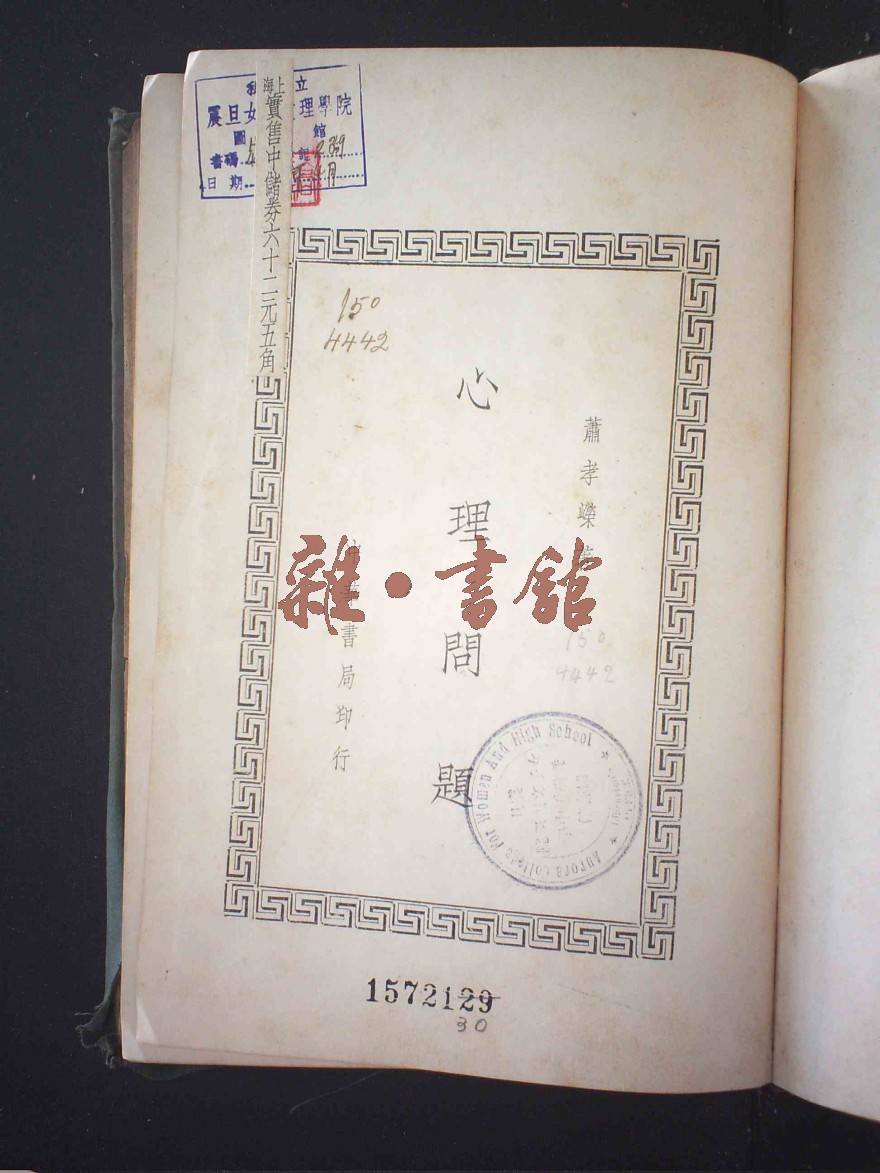 私立
震旦女 理學院
圖 館
書碼
日期 月
上海實售中儲券六十二元五角
150
4442
蕭孝嶸
心理問題
書局印行
雜·書館
150
4442
Aurora College For Women And High School
1572129
30